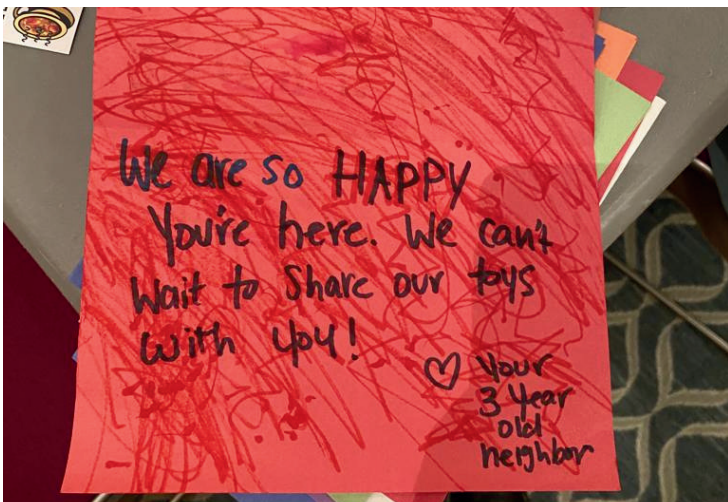 We are so HAPPY
You're here. We can't
Wait to Share our toys
With you!
♡ Your
3 Year
old
neighbor